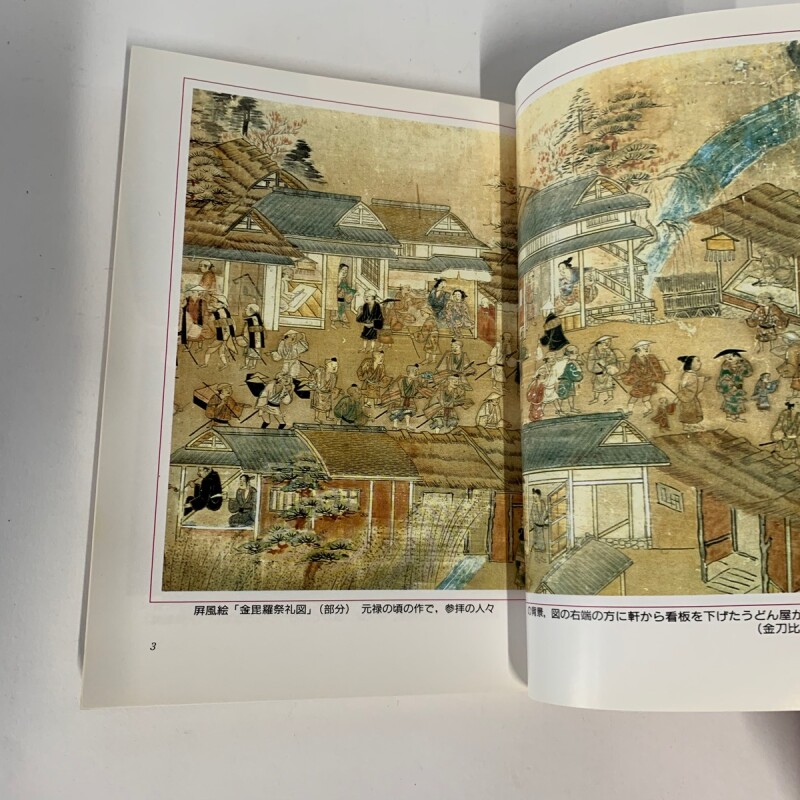 屏風絵「金毘羅祭礼図」（部分）　元禄の頃の作で，参拝の人々
の背景，図の右端の方に軒から看板を下げたうどん屋が
（金刀比
3